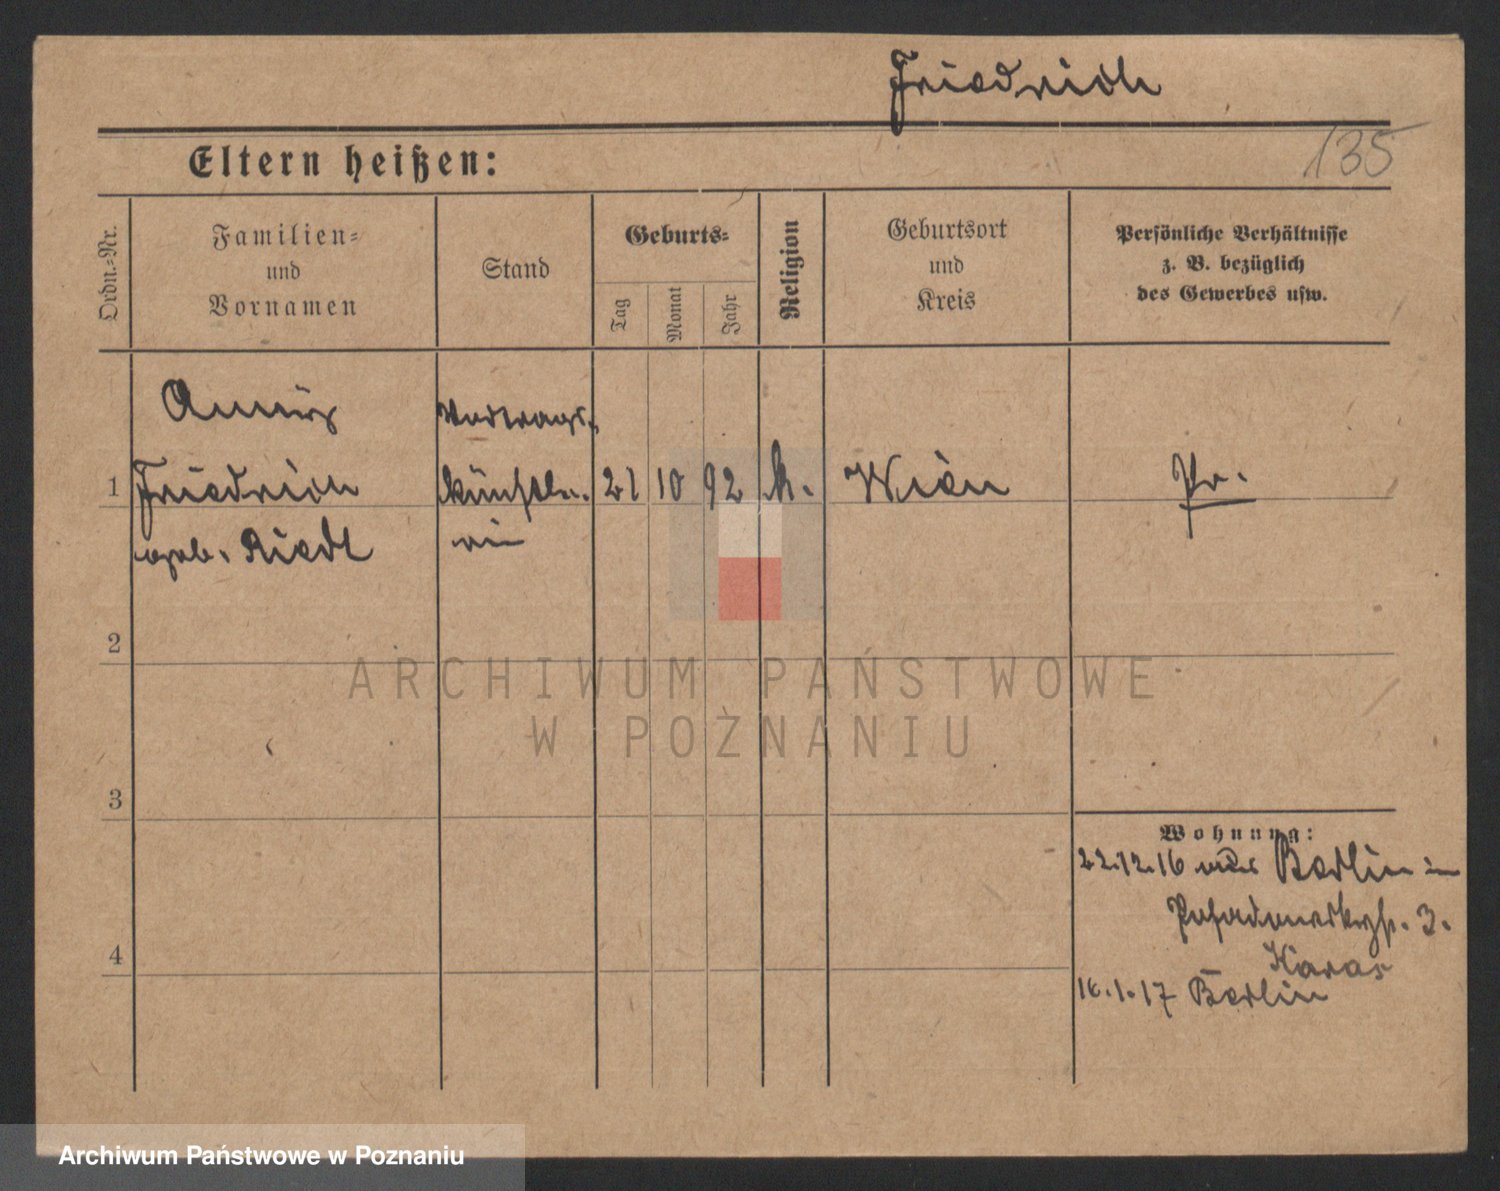 Friedrich
135
Eltern heißen:
Ordn.=Nr.
Familien=
und
Vornamen
Stand
Geburts=
Tag
Monat
Jahr
Religion
Geburtsort
und
Kreis
Persönliche Verhältnisse
z. B. bezüglich
des Gewerbes usw.
Vortrags-
1 Friedrich künstle- 21 10 92 k. Wien Pr.
geb. Riedl rin
2
3
4
Wohnung:
22.12.16 aus Berlin in
3.
Karas
16.1.17 Berlin
ARCHIWUM PAŃSTWOWE
W POZNANIU
Archiwum Państwowe w Poznaniu